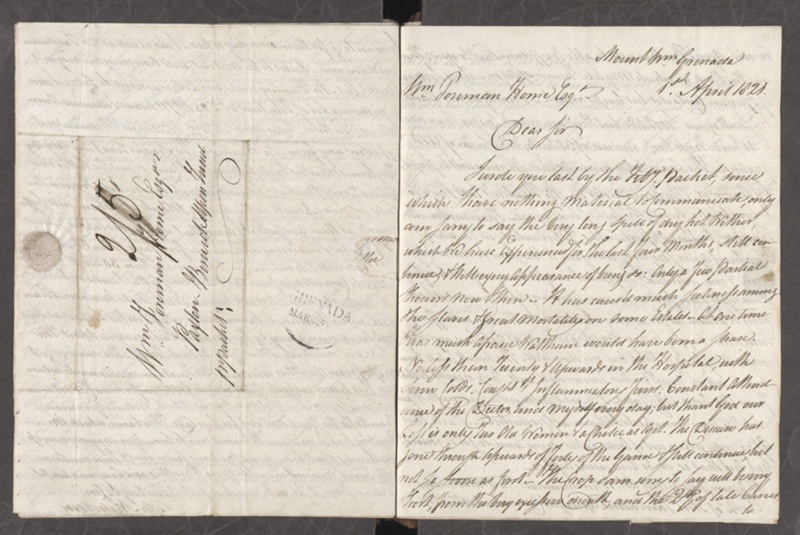 Mount Wm Grenada
1st April 1821
Wm Foreman Home Esqr
Dear Sir
I wrote you last by the Packet, since
which have nothing Material to Communicate, only
am sorry to say the very long spell of dry hot Wether,
which We have Experienced for the last four Months, still con
tinues, & still every Appearance of being so. Only a few partial
Showers Now & then - It has caused much Sickness among
the Slaves & Great Mortality on some Estates - At one time
was much afraid Waltham would have been a share
No less than Twenty & Upwards in the Hospital, with
Colds, Coughs & Inflammatory Constant Attend
ance of the Doctor and Myself every day; but thank God our
Loss is only Two Old Women & a as yet. The Disease has
gone through Upwards of Forty of the Gang & still continues but
not so as first - The Crop I am sorry to say will be very
Short, from the very month, and the of late Canes
to
2/5
Wm Foreman Home Esqr
Paxton Berwick Upon Tweed
pr Packet
GRENADA
MAR